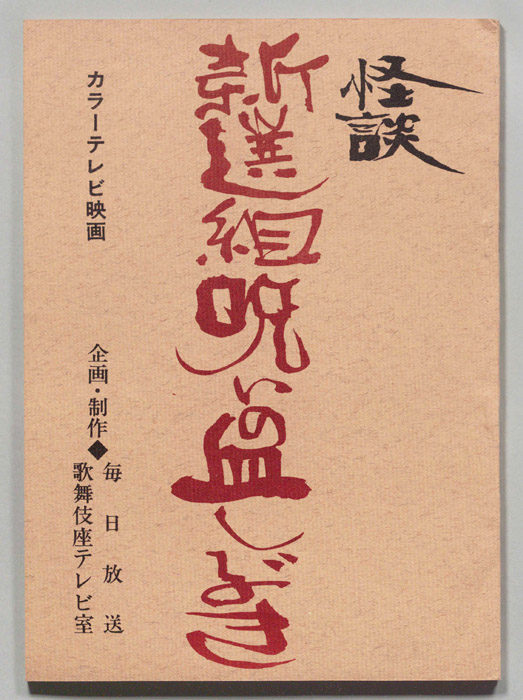 怪談
新選組呪いの血しぶき
カラーテレビ映画
企画・制作◆
毎日放送
歌舞伎座テレビ室